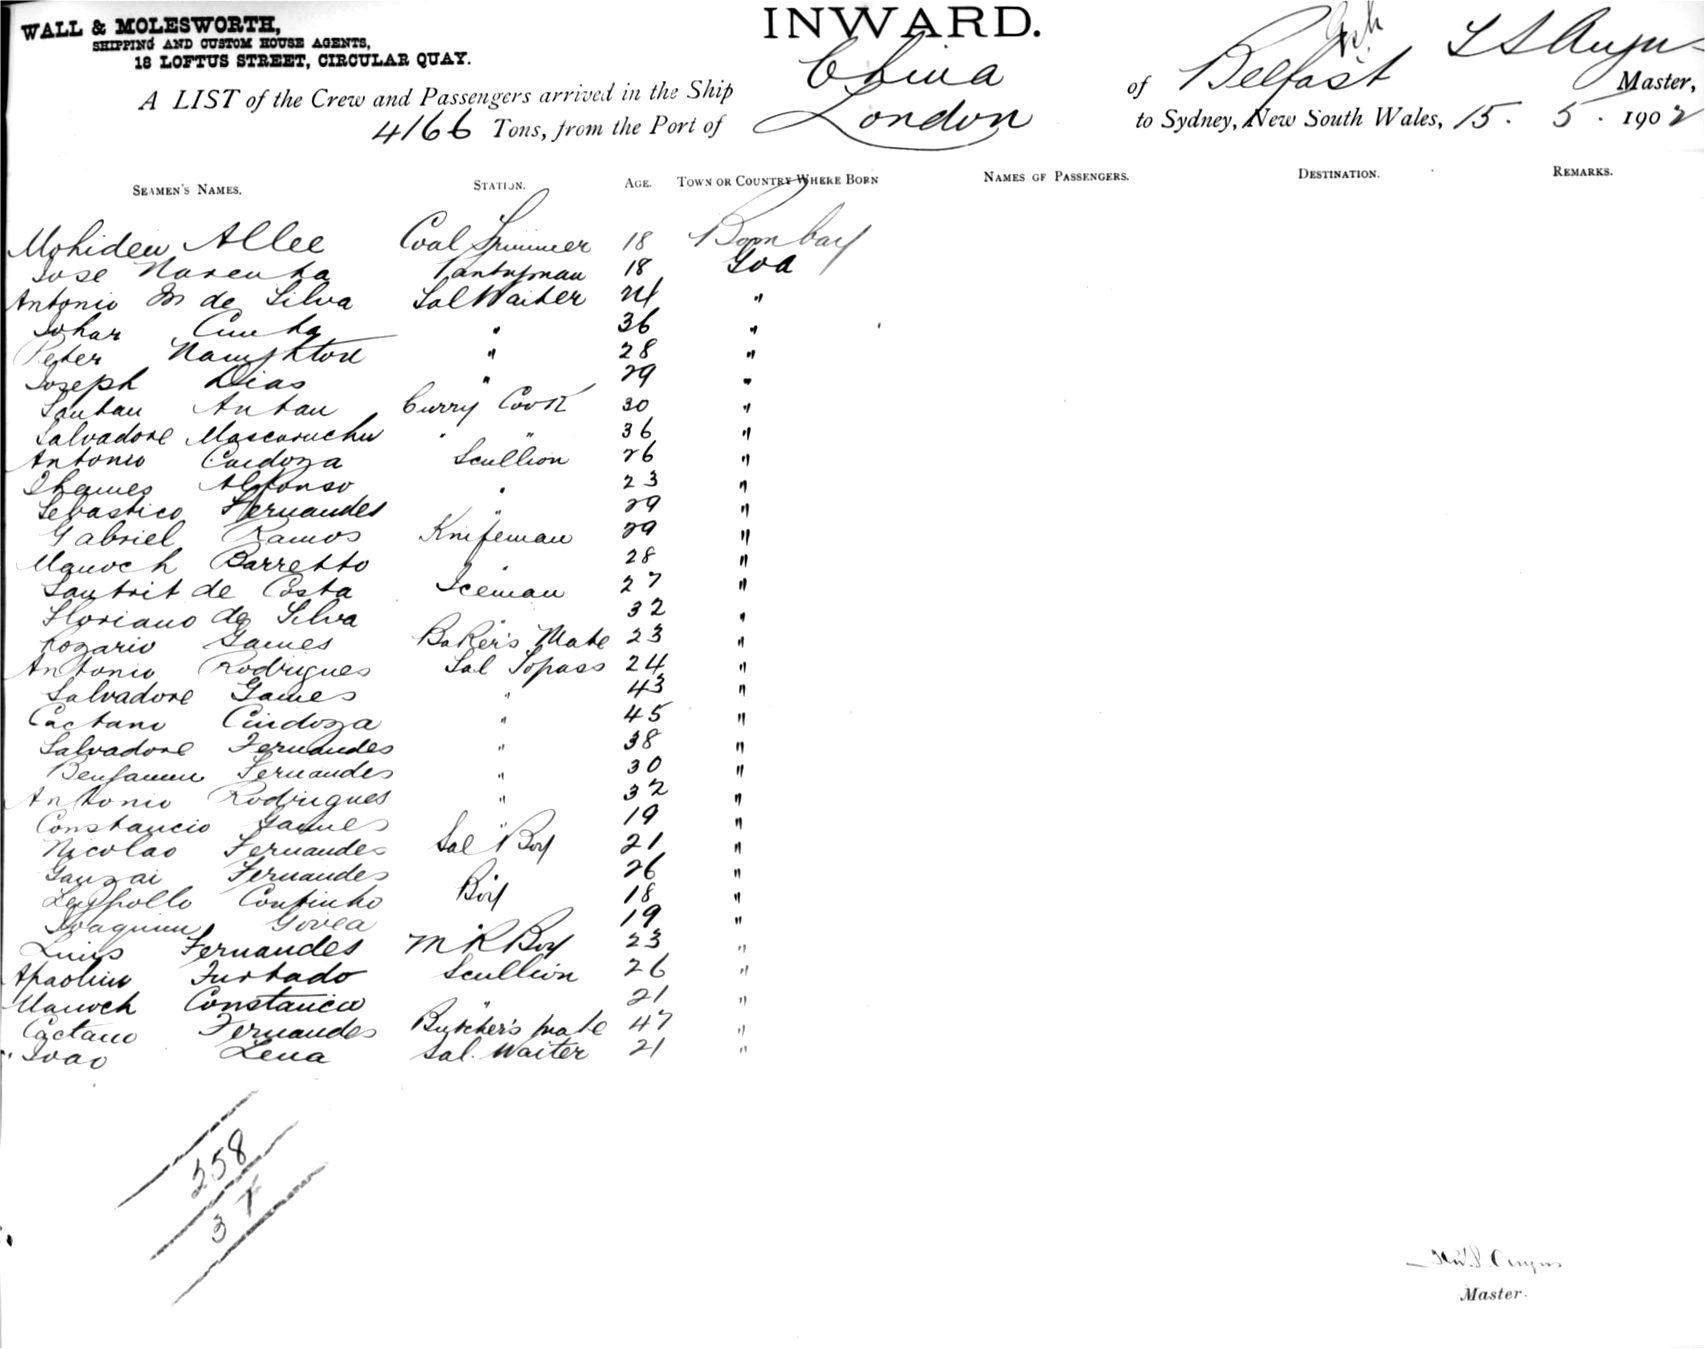 WALL & MOLESWORTH,
SHIPPING AND CUSTOM HOUSE AGENTS,
18 LOFTUS STREET, CIRCULAR QUAY.
INWARD.
A LIST of the Crew and Passengers arrived in the Ship China of Belfast Master,
4166 Tons, from the Port of London to Sydney, New South Wales, 15. 5. 1902
SEAMEN'S NAMES. STATION. AGE. TOWN OR COUNTRY WHERE BORN NAMES OF PASSENGERS. DESTINATION. REMARKS.
Mohideen Allee Coal Trimmer 18 Bombay
Jose Pantryman 18 Goa
Antonio M de Silva Sal Waiter 24 "
Cunha " 36 "
Peter " 28 "
Joseph Dias " 29 "
Santan Antau Curry Cook 30 "
Salvadore " " 36 "
Antonio Cardoza Scullion 26 "
Alfonso " 23 "
Fernandes " 29 "
Gabriel Ramos Knifeman 29 "
Manoch Barretto " 28 "
de Costa Iceman 27 "
Floriano de Silva " 32 "
Rozario Games Baker's Mate 23 "
Antonio Rodrigues Sal Topass 24 "
Salvadore Games " 43 "
Caetano Cardoza " 45 "
Salvadore Fernandes " 38 "
Benjamin Fernandes " 30 "
Antonio Rodrigues " 32 "
Constancio Games " 19 "
Nicolao Fernandes Sal Boy 21 "
Fernandes 26 "
Continho Boy 18 "
Joaquim Govea " 19 "
Luis Fernandes M R Boy 23 "
Apaolino Furtado Scullion 26 "
Manoch Constancio " 21 "
Caetano Fernandes Butcher's mate 47 "
" Joao Lena Sal. Waiter 21 "
258
37
Master.